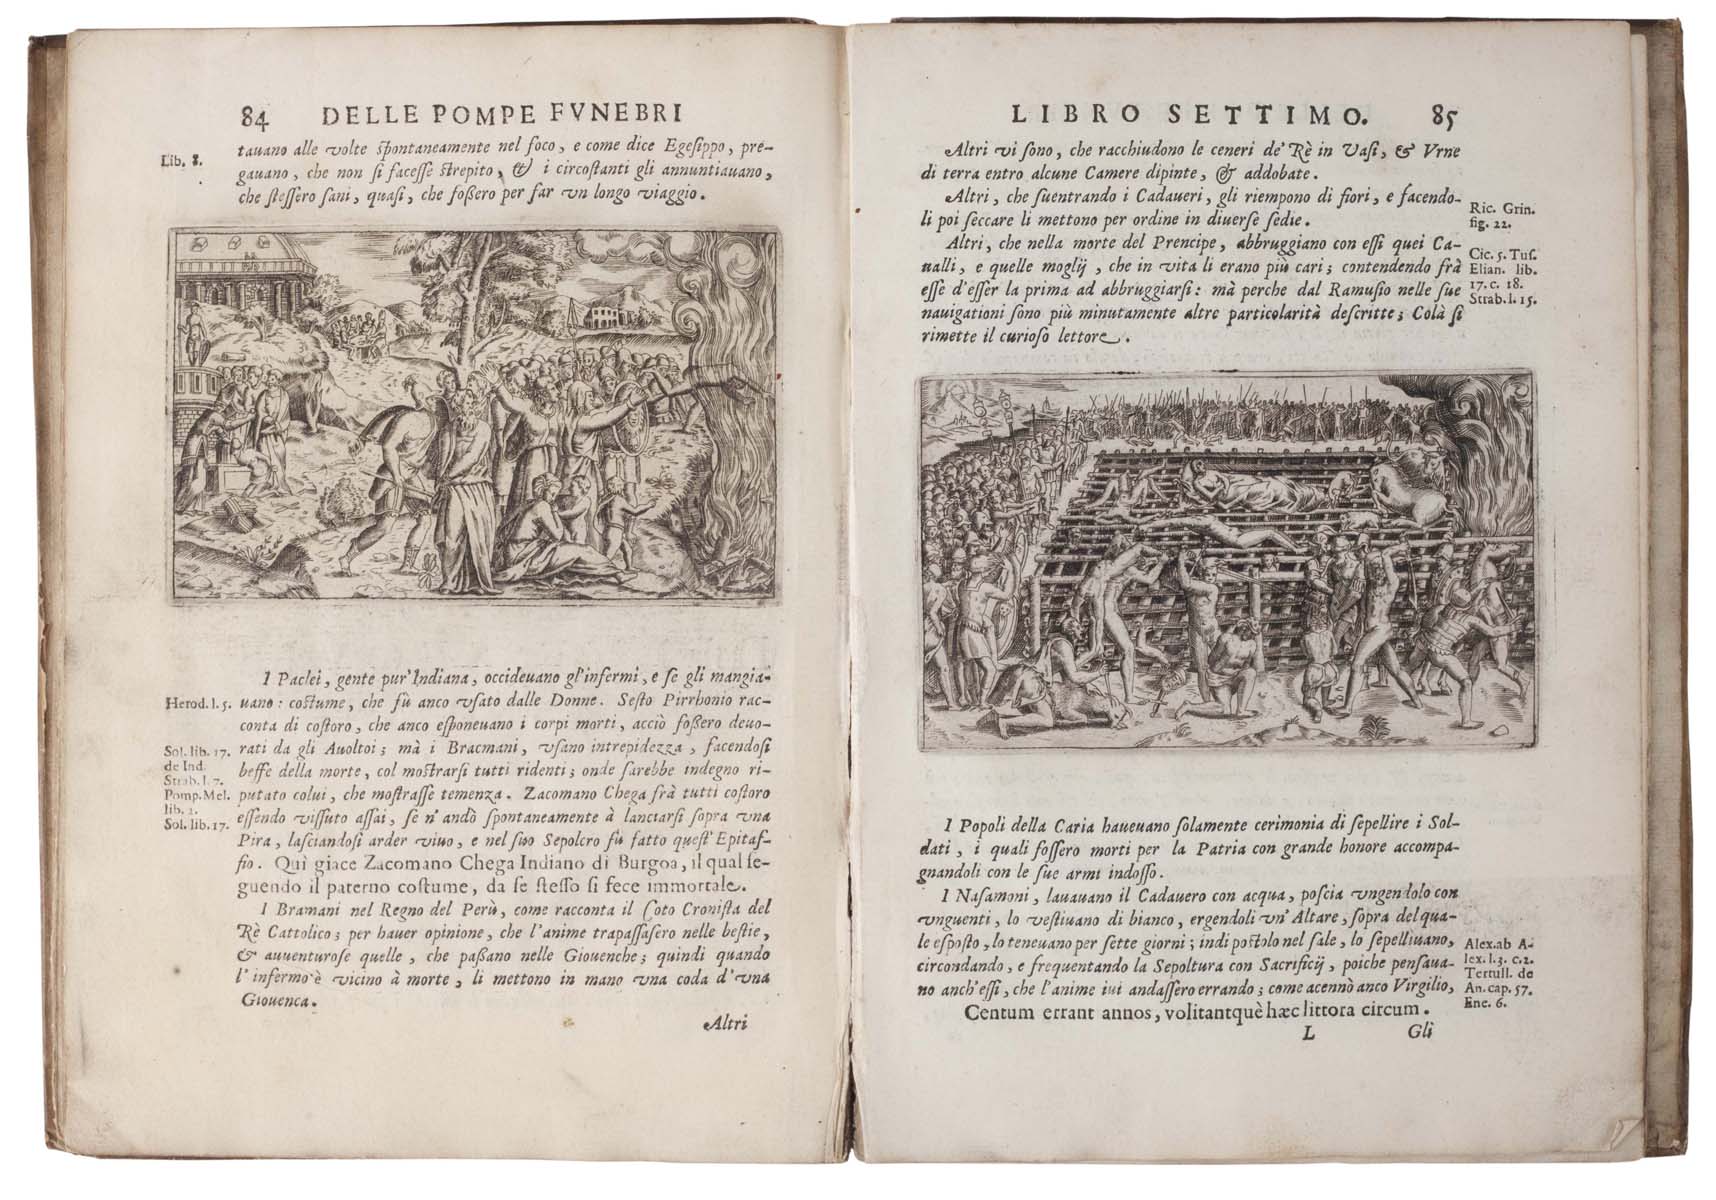 84 DELLE POMPE FVNEBRI
Lib. 8.
tauano alle volte spontaneamente nel foco, e come dice Egesippo, pre-
gauano, che non si facesse strepito, & i circostanti gli annuntiauano,
che stessero sani, quasi, che foßero per far vn longo viaggio.
I Paclei, gente pur' Indiana, occideuano gl'infermi, e se gli mangia-
Herod. l. 5.
uano: costume, che fù anco vsato dalle Donne. Sesto Pirrhonio rac-
conta di costoro, che anco esponeuano i corpi morti, acciò foßero deuo-
Sol. lib. 17.
de Ind.
Strab. l. 7.
Pomp. Mel.
lib. 2.
Sol. lib. 17.
rati da gli Auoltoi; mà i Bracmani, vsano intrepidezza, facendosi
beffe della morte, col mostrarsi tutti ridenti; onde sarebbe indegno ri-
putato colui, che mostrasse temenza. Zacomano Chega frà tutti costoro
essendo vissuto assai, se n'andò spontaneamente à lanciarsi sopra vna
Pira, lasciandosi arder viuo, e nel suo Sepolcro fù fatto quest' Epitaf-
fio. Quì giace Zacomano Chega Indiano di Burgoa, il qual se-
guendo il paterno costume, da se stesso si fece immortale.
I Bramani nel Regno del Perù, come racconta il Soto Cronista del
Rè Cattolico; per hauer opinione, che l'anime trapassasero nelle bestie,
& auuenturose quelle, che paßano nelle Giouenche; quindi quando
l'infermo è vicino à morte, li mettono in mano vna coda d'vna
Giouenca.
Altri
LIBRO SETTIMO. 85
Altri vi sono, che racchiudono le ceneri de' Rè in Vasi, & Vrne
di terra entro alcune Camere dipinte, & addobate.
Altri, che suentrando i Cadaueri, gli riempono di fiori, e facendo-
li poi seccare li mettono per ordine in diuerse sedie.
Ric. Grin.
fig. 22.
Altri, che nella morte del Prencipe, abbruggiano con essi quei Ca-
ualli, e quelle moglij, che in vita li erano più cari; contendendo frà
esse d'esser la prima ad abbruggiarsi: mà perche dal Ramusio nelle sue
nauigationi sono più minutamente altre particolarità descritte; Colà si
rimette il curioso lettore.
Cic. 5. Tus.
Elian. lib.
17. c. 18.
Strab. l. 15.
I Popoli della Caria haueuano solamente cerimonia di sepellire i Sol-
dati, i quali fossero morti per la Patria con grande honore accompa-
gnandoli con le sue armi indosso.
I Nasamoni, lauauano il Cadauero con acqua, poscia vngendolo con
vnguenti, lo vestiuano di bianco, ergendoli vn' Altare, sopra del qua-
le esposto, lo teneuano per sette giorni; indi postolo nel sale, lo sepelliuano,
circondando, e frequentando la Sepoltura con Sacrificij, poiche pensaua-
no anch'essi, che l'anime iui andassero errando; come acennò anco Virgilio,
Alex. ab A-
lex. l. 3. c. 2.
Tertull. de
An. cap. 57.
Ene. 6.
Centum errant annos, volitantquè hæc littora circum.
L Gli